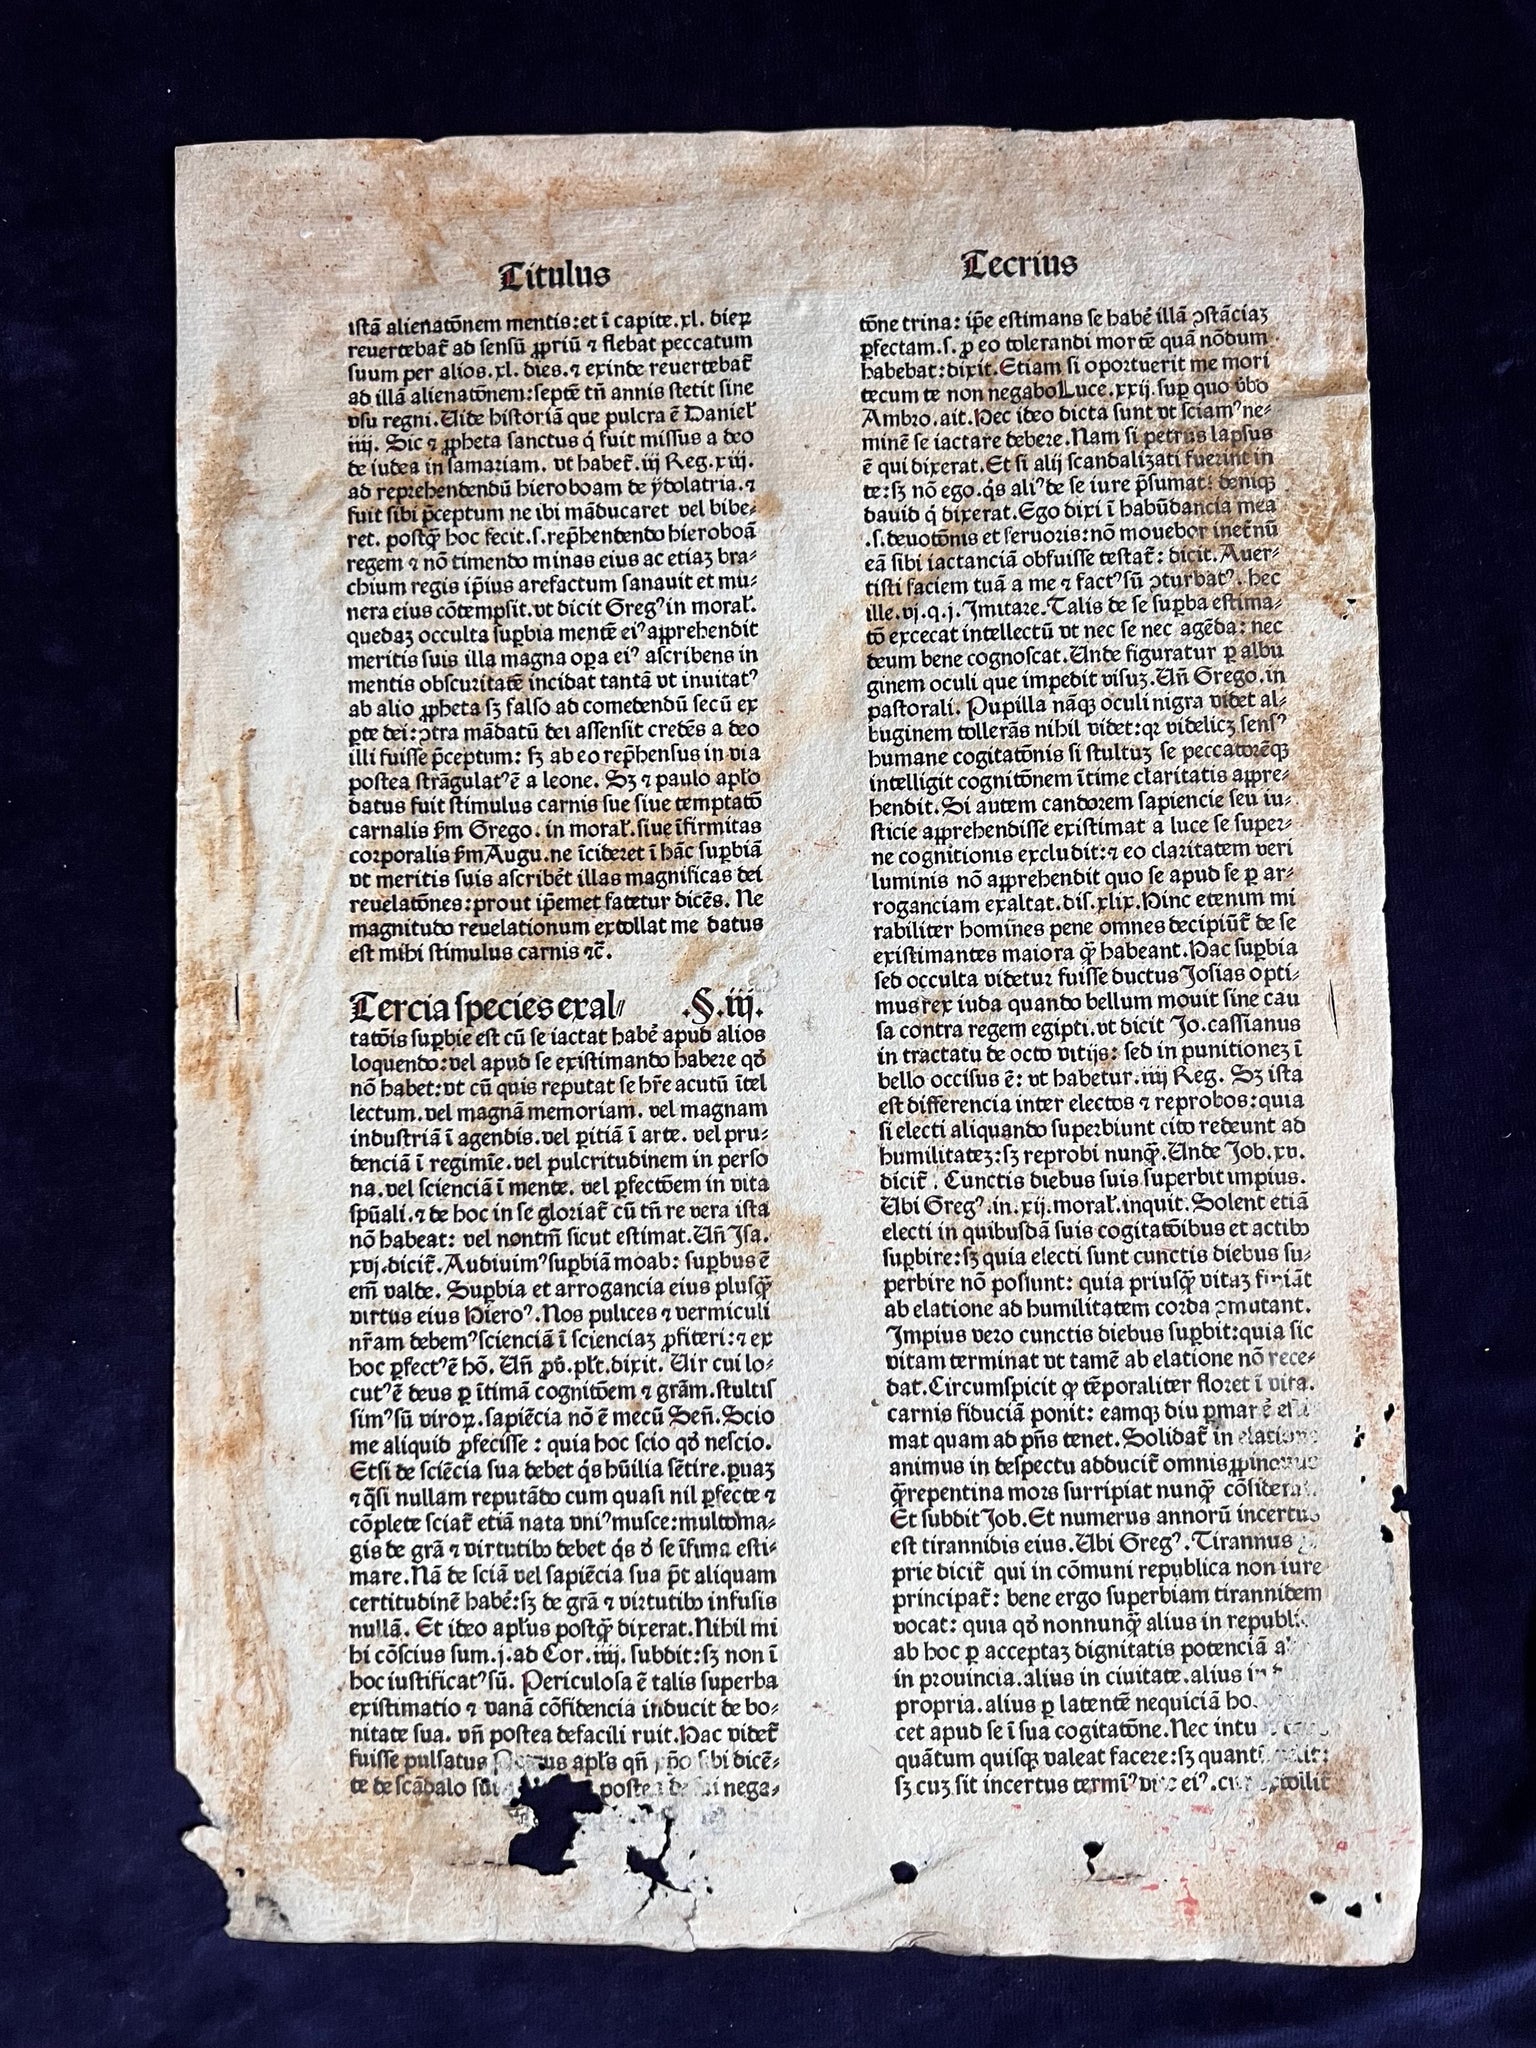 Titulus
Tecrius
istā alienatōnem mentis:et ī capite.xl. dieꝝ
reuertebat̄ ad sensū ꝓpriū ⁊ flebat peccatum
suum per alios.xl. dies.⁊ exinde reuertebat̄
ad illā alienatōnem:septē tn̄ annis stetit sine
vsu regni.Uide historiā que pulcra ē Daniel̕
iiij. Sic ⁊ ꝓpheta sanctus q̇ fuit missus a deo
de iudea in samariam. vt habet̄.iij Reg.xiij.
ad reprehendendū hieroboam de ẏdolatria.⁊
fuit sibi p̄ceptum ne ibi māducaret vel bibe⸗
ret. postqꝫ̄ hoc fecit.s.rep̄hendendo hieroboā
regem ⁊ nō timendo minas eius ac etiaꝫ bra⸗
chium regis ip̄ius arefactum sanauit et mu⸗
nera eius cōtempsit.vt dicit Gregꝰ in moral̕.
quedaꝫ occulta suꝑbia mentē eiꝰ apprehendit
meritis suis illa magna oꝑa eiꝰ ascribens in
mentis obscuritatē incidat tantā vt inuitatꝰ
ab alio ꝓpheta sꝫ falso ad comedendū secū ex
ꝑte dei:ꝯtra mādatū dei assensit credēs a deo
illi fuisse p̄ceptum: sꝫ ab eo rep̄hensus in via
postea strāgulatꝰ ē a leone. Sꝫ ⁊ paulo apl̄o
datus fuit stimulus carnis sue siue temptatō
carnalis s̄m Grego. in moral̕.siue īfirmitas
corporalis s̄m Augu.ne īcideret ī hāc suꝑbiā
vt meritis suis ascribēt illas magnificas dei
reuelatōnes:prout ip̄emet fatetur dicēs. Ne
magnitudo reuelationum extollat me datus
est mihi stimulus carnis ⁊c̄.
Tercia species exal⸗ .§.iij.
tatōis suꝑbie est cū se iactat habē apud alios
loquendo:vel apud se existimando habere qđ
nō habet:vt cū quis reputat se hr̄e acutū ītel
lectum.vel magnā memoriam. vel magnam
industriā ī agendis.vel ꝑitiā ī arte. vel pru⸗
denciā ī regimīe.vel pulcritudinem in perso
na.vel scienciā ī mente. vel ꝑfectōem in vita
spūali.⁊ de hoc in se gloriat̄ cū tn̄ re vera ista
nō habeat: vel nontm̄ sicut estimat.Un̄ Isa.
xvj.dicit̄.Audiuimꝰ suꝑbiā moab: suꝑbus ē
em̄ valde. Suꝑbia et arrogancia eius plusqꝫ̄
virtus eius Hieroꝰ. Nos pulices ⁊ vermiculi
nr̄am debemꝰ scienciā ī scienciaꝫ ꝓfiteri:⁊ ex
hoc ꝑfectꝰ ē hō. Un̄ ꝓv̄.pl̄t.dixit. Uir cui lo⸗
cutꝰ ē deus ꝑ ītimā cognitōem ⁊ grām.stultis
simꝰ sū viroꝝ.sapiēcia nō ē mecū Sen̄. Scio
me aliquid ꝓfecisse : quia hoc scio qđ nescio.
Etsi de sciēcia sua debet q̇s hūilia sētire.ꝑuaꝫ
⁊ q̄si nullam reputādo cum quasi nil ꝑfecte ⁊
cōplete sciat̄ etiā nata vniꝰ musce:multoma⸗
gis de grā ⁊ virtutibꝫ debet q̇s đ se īfima esti⸗
mare. Nā de sciā vel sapiēcia sua pōt aliquam
certitudinē habē:sꝫ de grā ⁊ virtutibꝫ infusis
nullā. Et ideo apl̄us postqꝫ̄ dixerat.Nihil mi
hi cōscius sum.j.ad Cor.iiij. subdit:sꝫ non ī
hoc iustificatꝰ sū. Periculosa ē talis superba
existimatio ⁊ vanā cōfidenciā inducit de bo⸗
nitate sua. vn̄ postea defacili ruit.Hac videt̄
fuisse pulsatus apl̄s qn̄ xp̄o sibi dicē⸗
te de scādalo postea nega⸗
tōne trina: ip̄e estimans se habē illā ꝯstāciaꝫ
ꝑfectam.s. ꝑ eo tolerandi mortē quā nōdum
habebat:dixit.Etiam si oportuerit me mori
tecum te non negabo Luce.xxij.suꝑ quo v̄bo
Ambro.ait.Hec ideo dicta sunt vt sciamꝰ ne⸗
minē se iactare debere.Nam si petrus lapsus
ē qui dixerat.Et si alij scandalizati fuerint in
te:sꝫ nō ego.q̇s aliꝰ de se iure p̄sumat: deniqꝫ
dauid q̇ dixerat.Ego dixi ī habūdancia mea
.s.deuotōnis et feruoris:nō mouebor inet̄nū
eā sibi iactanciā obfuisse testat̄: dicit. Auer⸗
tisti faciem tuā a me ⁊ factꝰ sū ꝯturbatꝰ. hec
ille.vj.q.j.Imitare.Talis de se suꝑba estima⸗
tō excecat intellectū vt nec se nec agēda: nec
deum bene cognoscat.Unde figuratur ꝑ albu
ginem oculi que impedit visuꝫ.Un̄ Grego.in
pastorali. Pupilla nāqꝫ oculi nigra videt al⸗
buginem tollerās nihil videt:qꝛ videlicꝫ sensꝰ
humane cogitatōnis si stultuꝫ se peccatorēqꝫ
intelligit cognitōnem ītime claritatis appre⸗
hendit. Si autem candorem sapiencie seu iu⸗
sticie apprehendisse existimat a luce se super⸗
ne cognitionis excludit:⁊ eo claritatem veri
luminis nō apprehendit quo se apud se ꝑ ar⸗
roganciam exaltat.dis.xlix.Hinc etenim mi
rabiliter homīnes pene omnes decipiūt̄ de se
existimantes maiora qꝫ̄ habeant. Hac suꝑbia
sed occulta videtur fuisse ductus Josias opti⸗
mus rex iuda quando bellum mouit sine cau
sa contra regem egipti.vt dicit Jo.cassianus
in tractatu de octo vitijs: sed in punitioneꝫ ī
bello occisus ē: vt habetur.iiij Reg. Sꝫ ista
est differencia inter electos ⁊ reprobos:quia
si electi aliquando superbiunt cito redeunt ad
humilitateꝫ:sꝫ reprobi nunqꝫ̄. Unde Job.xv.
dicit̄ . Cunctis diebus suis superbit impius.
Ubi Gregꝰ.in.xij.moral̕.inquit. Solent etiā
electi in quibusdā suis cogitatōibus et actibꝫ
suꝑbire:sꝫ quia electi sunt cunctis diebus su⸗
perbire nō possunt: quia priusqꝫ̄ vitaꝫ finiāt
ab elatione ad humilitatem corda ꝯmutant.
Impius vero cunctis diebus suꝑbit:quia sic
vitam terminat vt tamē ab elatione nō rece⸗
dat.Circumspicit qꝫ tēporaliter floret ī vita.
carnis fiduciā ponit: eamqꝫ diu ꝑmar
mat quam ad pn̄s tenet. Solidat̄ in elatione
animus in despectu adducit̄ omnis
qꝫ̄ repentina mors surripiat nunqꝫ̄ cōsiderat.
Et subdit Job.Et numerus annorū incertus
est tirannidis eius. Ubi Gregꝰ. Tirannus
prie dicit̄ qui in cōmuni republica non iure
principat̄: bene ergo superbiam tirannidem
vocat: quia qđ nonnunqꝫ̄ alius in republi
ab hoc ꝑ acceptaꝫ dignitatis potenciā
in prouincia.alius in ciuitate.alius in
propria.alius ꝑ latentē nequiciā
cet apud se ī sua cogitatōne.Nec intu
quātum quisqꝫ valeat facere:sꝫ
sꝫ cuꝫ sit incertus termīꝰ eiꝰ.